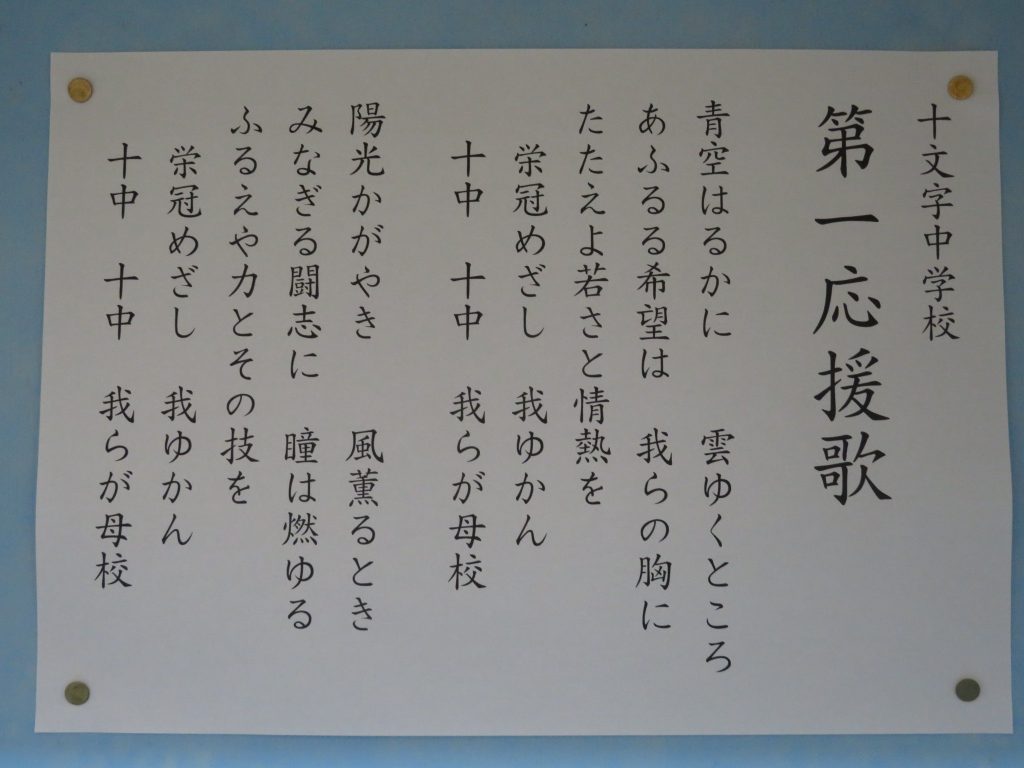 十文字中学校
第一応援歌
青空はるかに　雲ゆくところ
あふるる希望は　我らの胸に
たたえよ若さと情熱を
栄冠めざし　我ゆかん
十中　十中　我らが母校
陽光かがやき　風薫るとき
みなぎる闘志に　瞳は燃ゆる
ふるえや力とその技を
栄冠めざし　我ゆかん
十中　十中　我らが母校